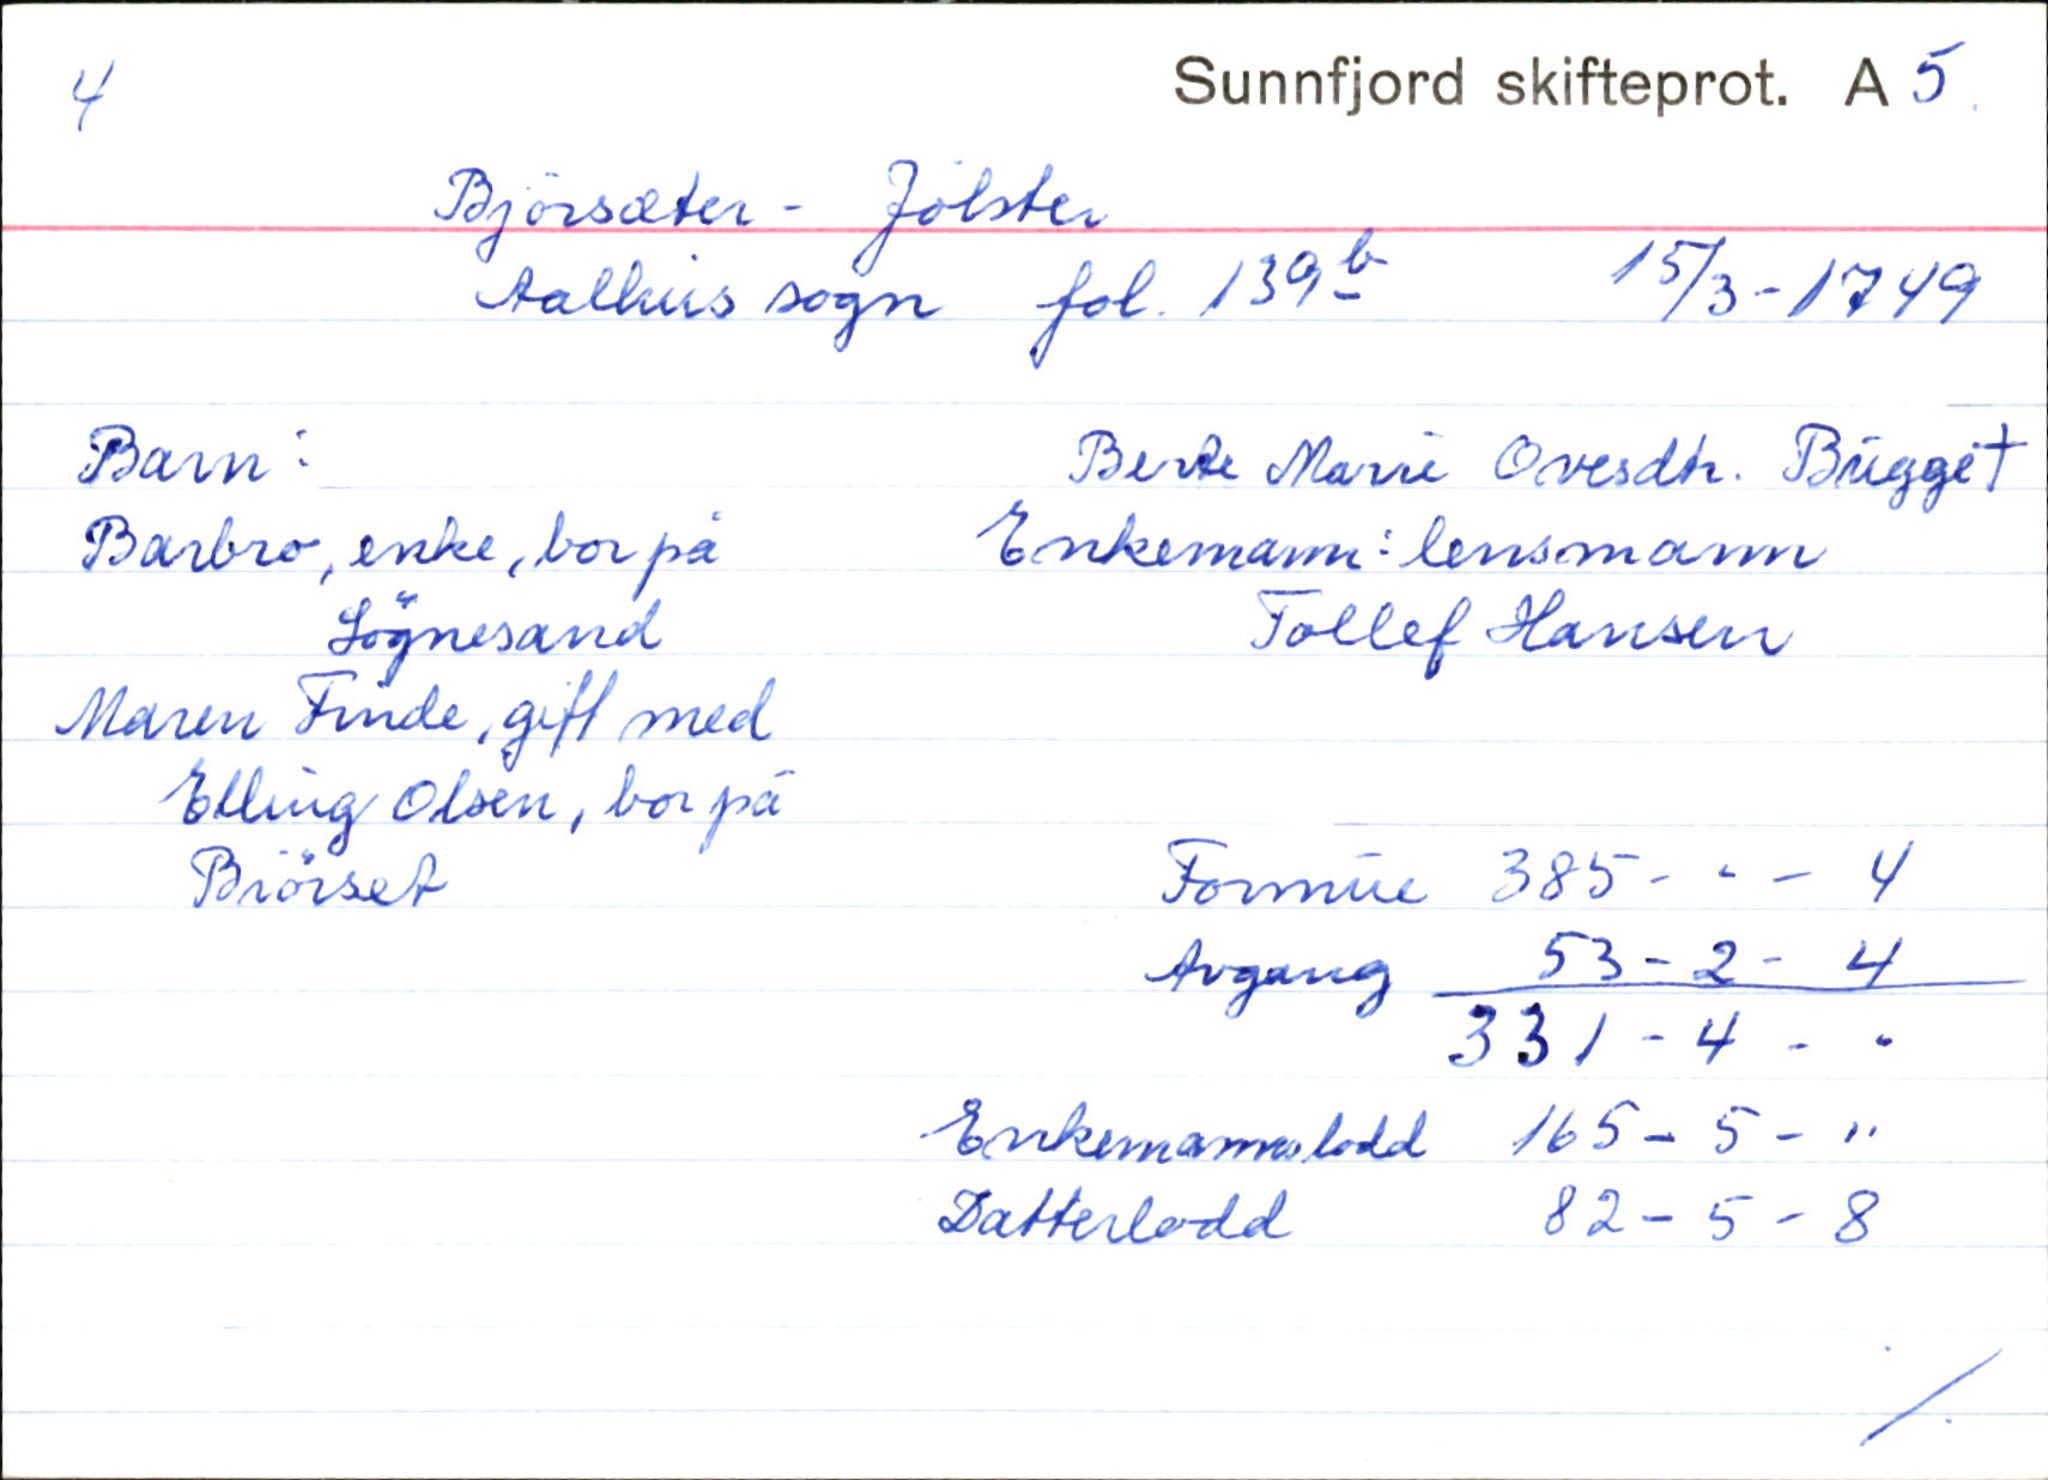 4
Sunnfjord skifteprot. A 5.
Björsæter - Jölster
Aalhus sogn fol. 139 b 15/3 - 1749
Barn:
Barbro, enke, bor på
Lögnesand
Maren Finde, gift med
Elling Olsen, bor på
Biörset
Berte Marie Ovesdtr. Bugge †
Enkemann: lensmann
Tollef Hansen
Formue 385 - " - 4
Avgang 53 - 2 - 4
331 - 4 - "
Enkemannslodd 165 - 5 - "
Datterlodd 82 - 5 - 8
/.